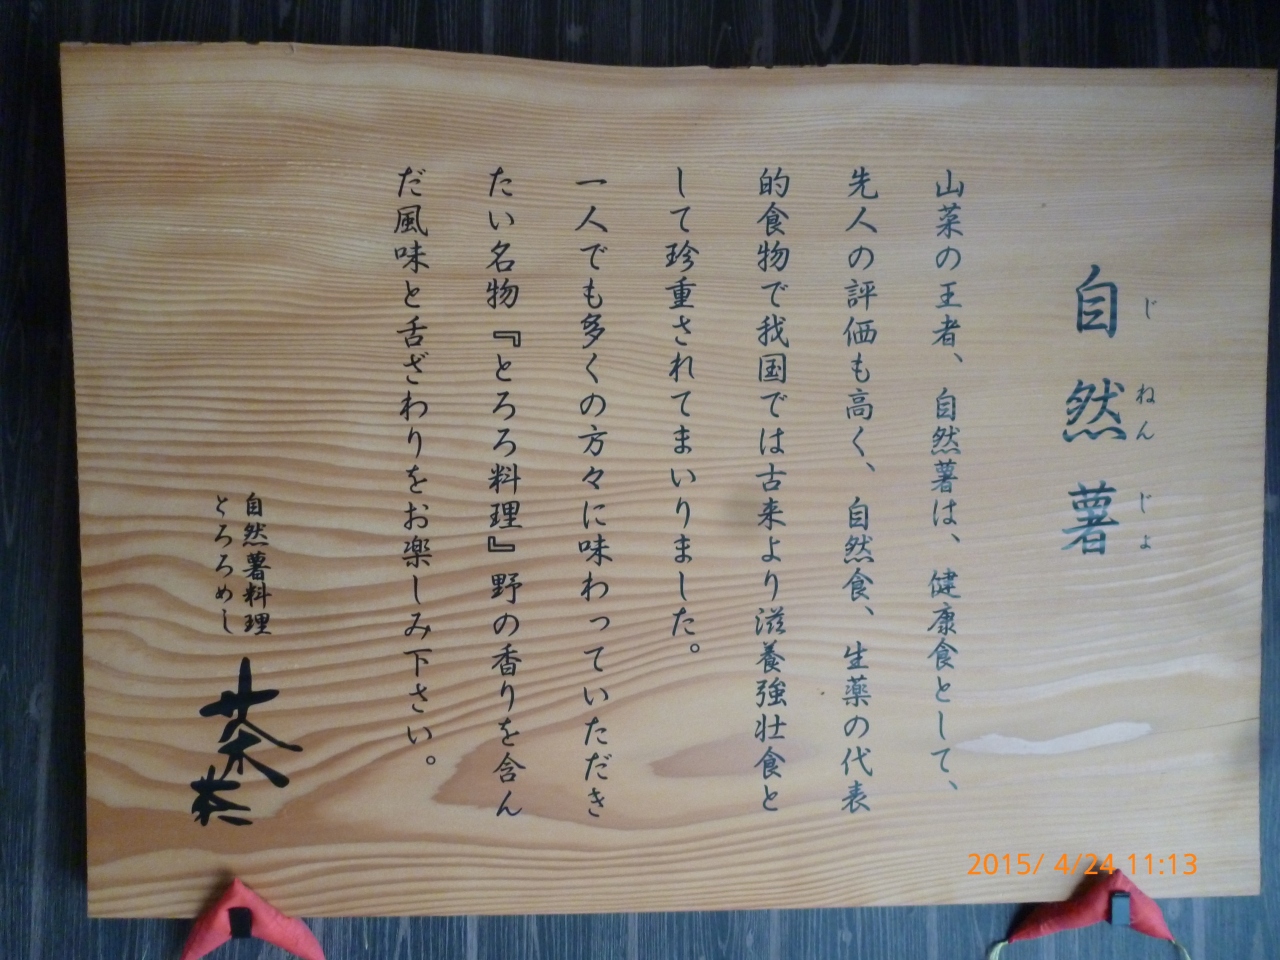 自然薯
じねんじょ
山菜の王者、自然薯は、健康食として、
先人の評価も高く、自然食、生薬の代表
的食物で我国では古来より滋養強壮食と
して珍重されてまいりました。
一人でも多くの方々に味わっていただき
たい名物『とろろ料理』野の香りを含ん
だ風味と舌ざわりをお楽しみ下さい。
自然薯料理
とろろめし
茶茶
2015/ 4/24 11:13